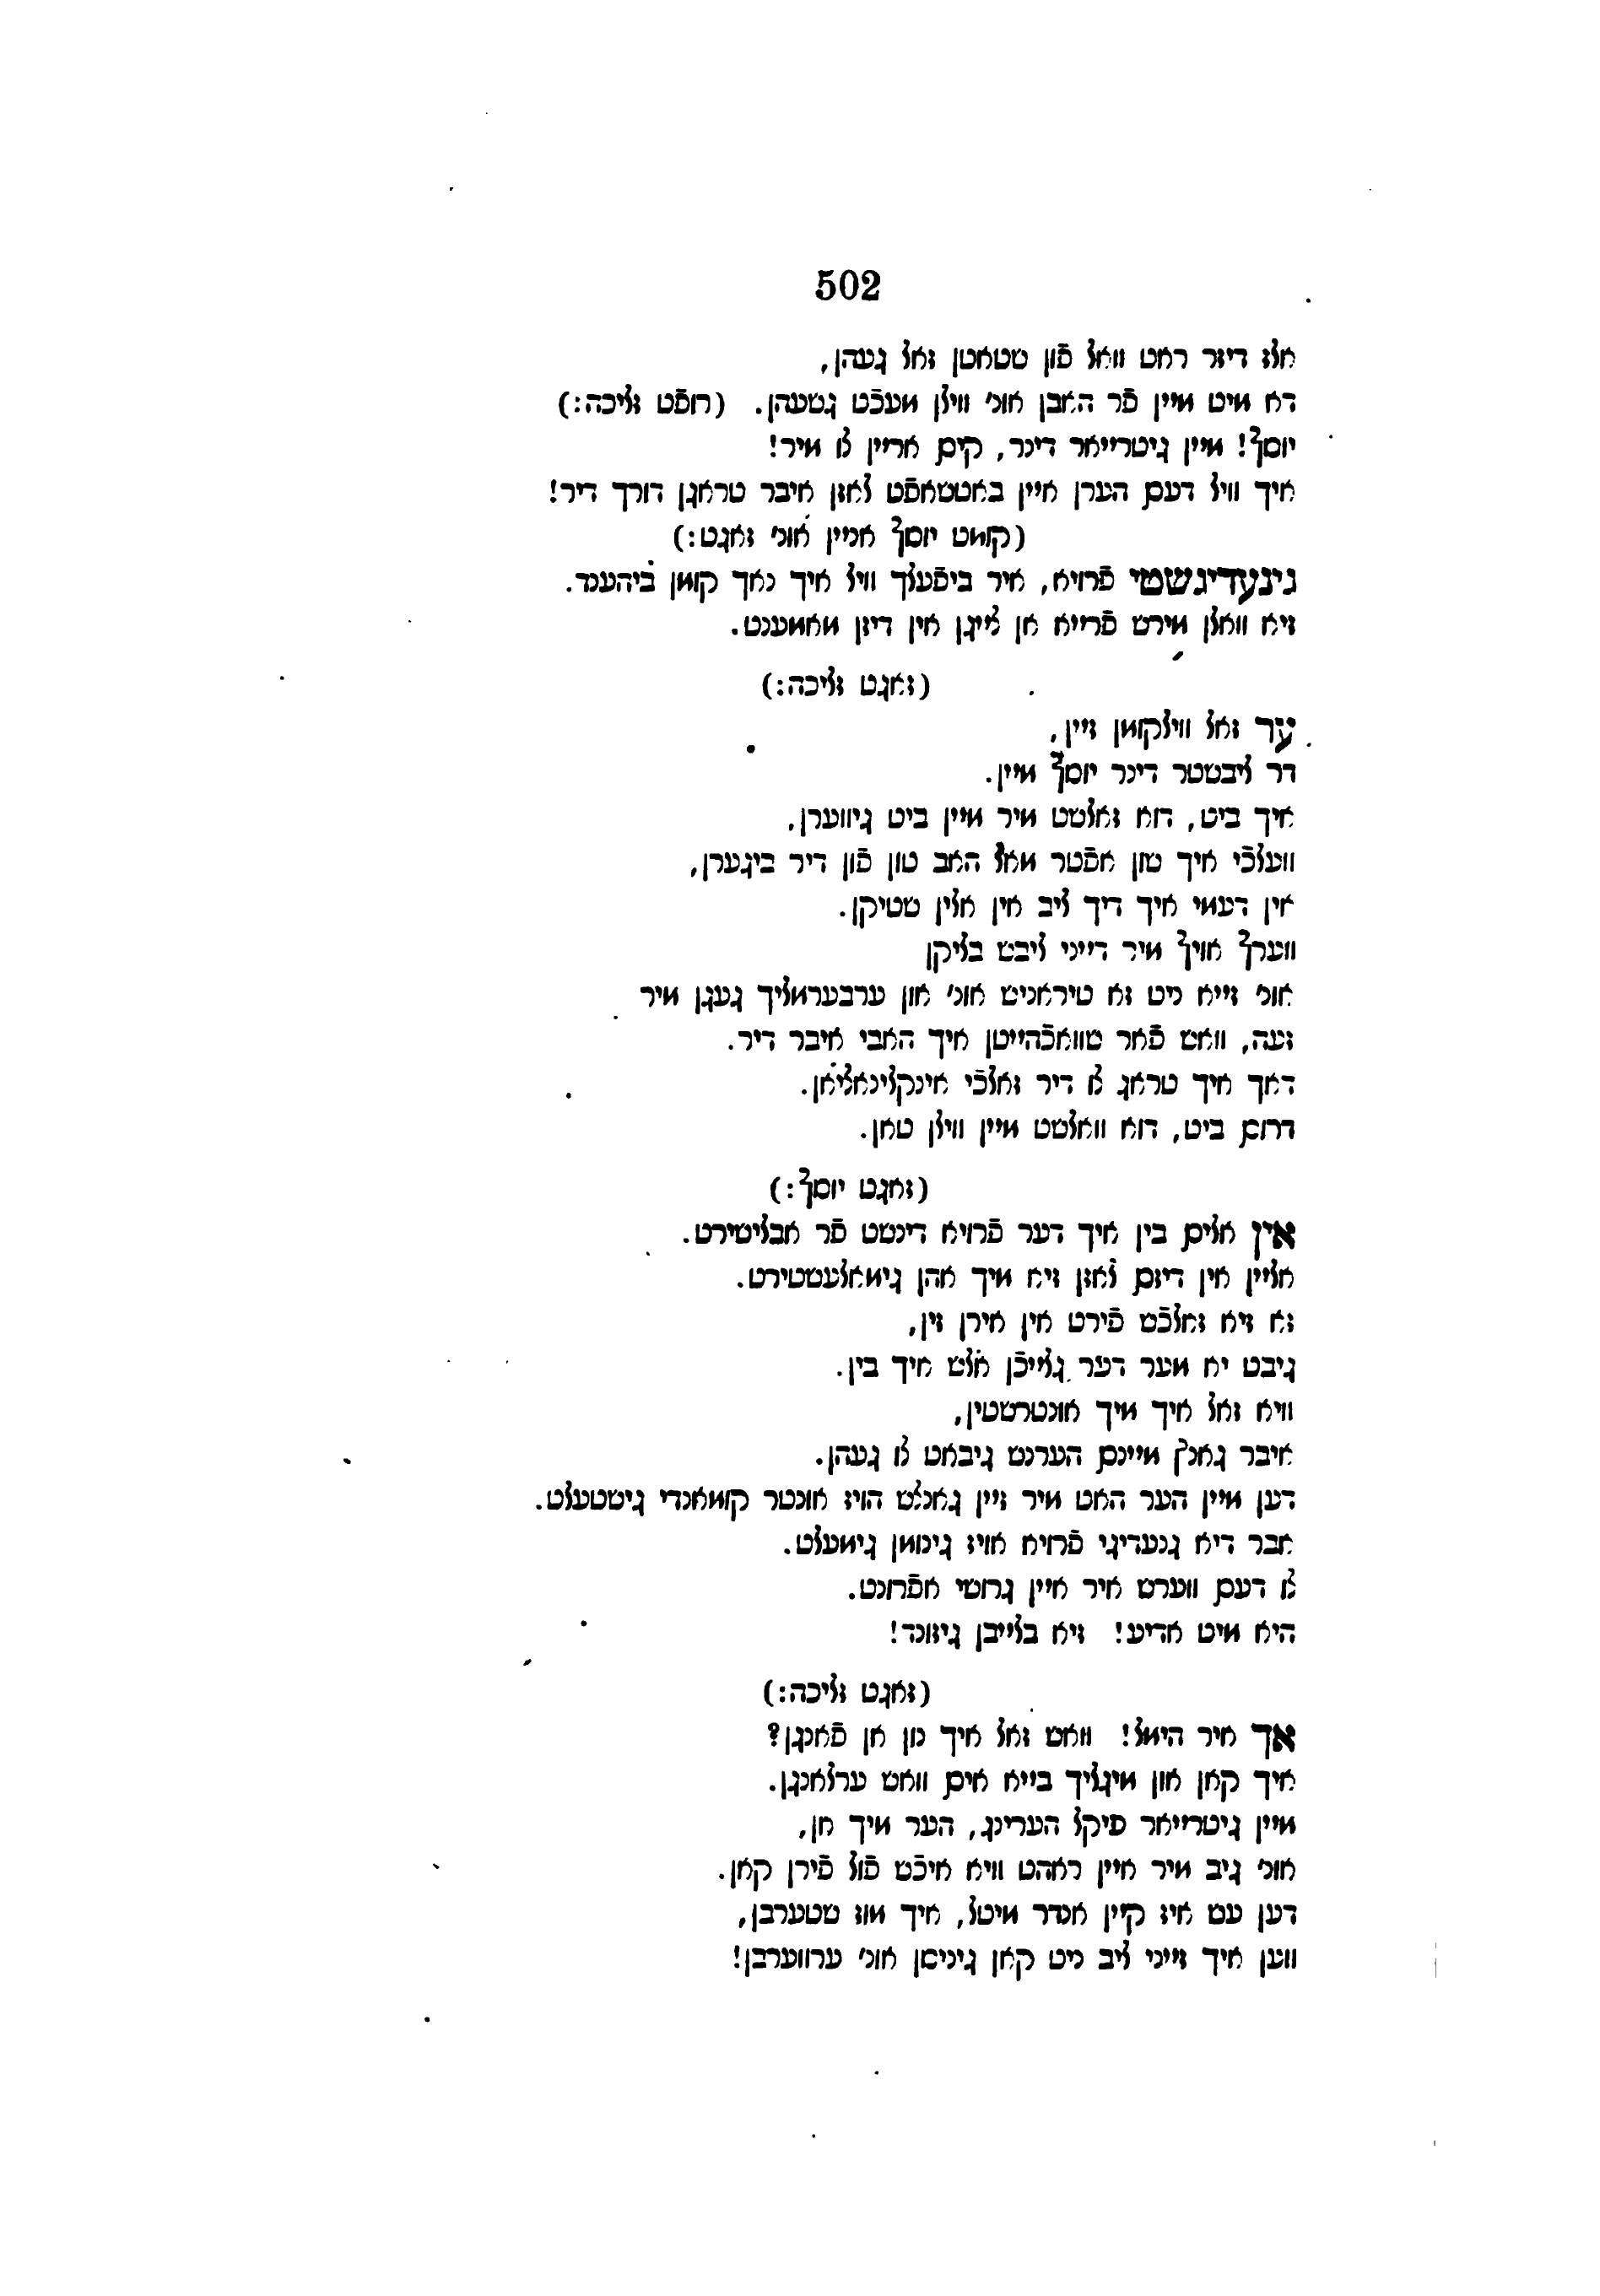 502
אלז דיזר ראט וואל פֿון שטאטן זאל געהן,
דא מיט מיין פֿר האבן אונ' ווילן מעכֿט גשעהן. (רופֿט זליכה:)
יוסף! מיין גיטרייאר דינר, קים אריין צו מיר!
איך וויל דעם הערן איין באטשאפֿט לאזן איבר טראגן דורך דיר!
(קומט יוסף אניין אונ' זאגט:)
גינעדיגשטי פֿרויא, איר ביפֿעלך וויל איך נאך קומן ביהענד.
זיא וואלן מירש פֿרייא אן צייגן אין דיזן מאמענט.
(זאגט זליכה:)
ער זאל ווילקומן זיין,
דר ליבשטר דינר יוסף מיין.
איך ביט, דוא זאלשט מיר מיין ביט גיווערן,
וועלכֿי איך שון אפֿטר מאל האב טון פֿון דיר ביגערן,
אין דעמי איך דיך ליב אין אלין שטיקן.
ווערף אויף מיר דייני ליבש בליקן
אונ' זייא ניט זא טיראניש אונ' און ערבערמליך געגן מיר
זעה, וואש פֿאר שוואכֿהייטן איך האבי איבר דיר.
דאך איך טראג צו דיר זאלכֿי אינקלינאציאן.
דרום ביט, דוא וואלשט מיין ווילן טאן.
(זאגט יוסף:)
אין אלים בין איך דער פֿרויא דינשט פֿר אבלישירט.
אליין אין דיזם לאזן זיא מיך אהן גימאלעשטירט.
זא זיא זאלכֿש פֿירט אין אירן זין,
גיבט יא מער דער גלייכֿן אלש איך בין.
וויא זאל איך מיך אונטרשטין,
איבר גאנץ מיינס הערנש גיבאט צו געהן.
דען מיין הער האט מיר זיין גאנצש הויז אונטר קומאנדי גישטעלט.
אבר דיא גנעדיגי פֿרויא אויז גינומן גימעלט.
צו דעם ווערש איר איין גרושי אפֿרונט.
היא מיט אדיע! זיא בלייבן גיזונד!
(זאגט זליכה:)
אך איר הימל! וואש זאל איך נון אן פֿאנגן?
איך קאן און מיגליך בייא אים וואש ערלאנגן.
מיין גיטרייאר פיקל הערינג, הער מיך אן,
אונ' גיב מיר איין ראהט וויא איכֿש פֿול פֿירן קאן.
דען עש איז קיין אנדר מיטל, איך מוז שטערבן,
ווען איך זייני ליב ניט קאן גיניסן אונ' ערווערבן!